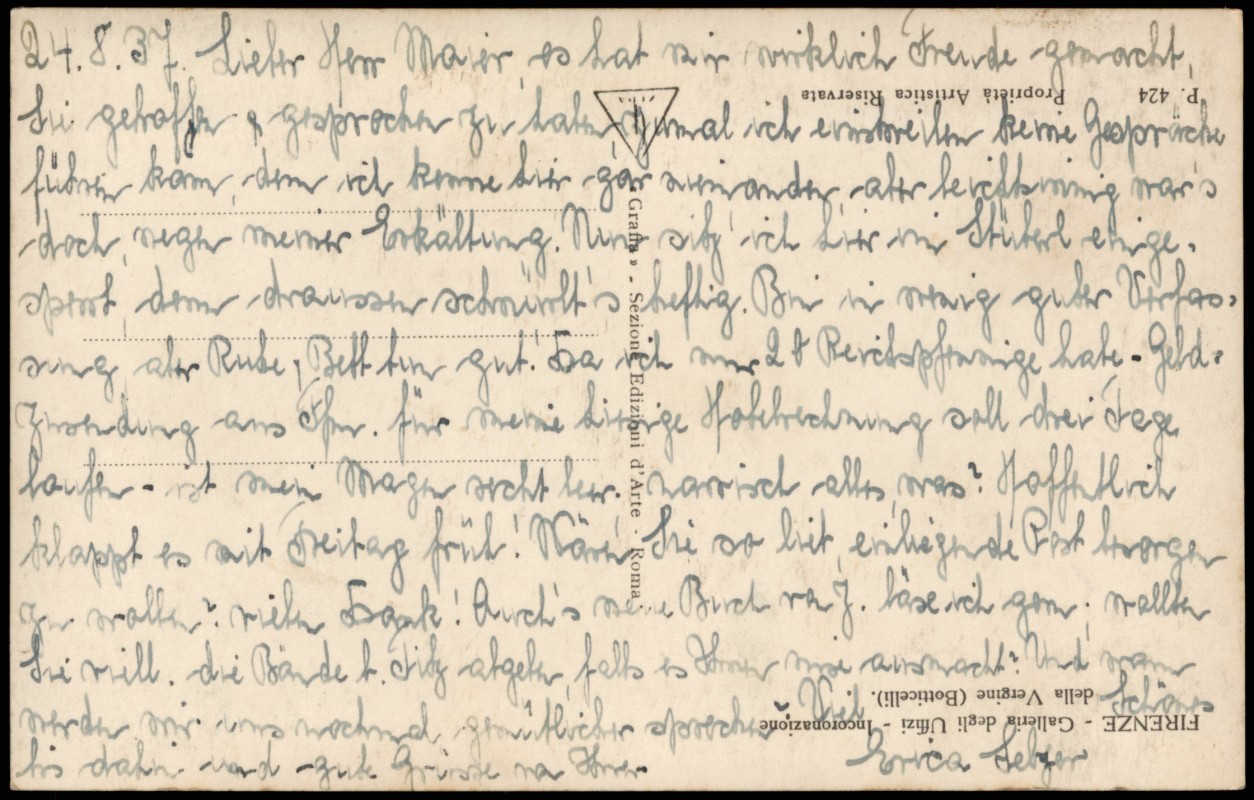 24.8.37. Lieber Herr Maier, es hat mir wirklich Freude gemacht,
Sie getroffen & gesprochen zu haben zumal ich einstweilen keine Gespräche
führen kann, denn ich kenne hier gar niemanden, aber leichtsinnig war's
doch, wegen meiner Erkältung. Nun sitz ich hier im Stüberl einge-
sperrt, denn draussen schnürlt's heftig. Bin in wenig guter Verfas-
sung, aber Ruhe, Bett tun gut. Da ich nur 28 Reichspfennige habe - Geld-
Zuwendung aus für meine hiesige Hotelrechnung soll drei Tage
laufen - ist mein Magen recht leer. narrisch alles, was? Hoffentlich
klappt es mit Freitag früh! Wären Sie so lieb, einliegende Post besorgen
zu wollen? vielen Dank! Auch's neue Buch läse ich gern; wollten
Sie viell. die Bände b. abgeben, falls es Ihnen nixe ausmacht? Und wann
werden wir uns nochmal gemütlicher sprechen? Viel Schönes
bis dahin und gute Grüsse von Ihrer
Erica
P. 424 Proprietà Artistica Riservata
« Grafia » - Sezione Edizioni d'Arte - Roma
FIRENZE - Galleria degli Uffizi - Incoronazione
della Vergine (Botticelli).